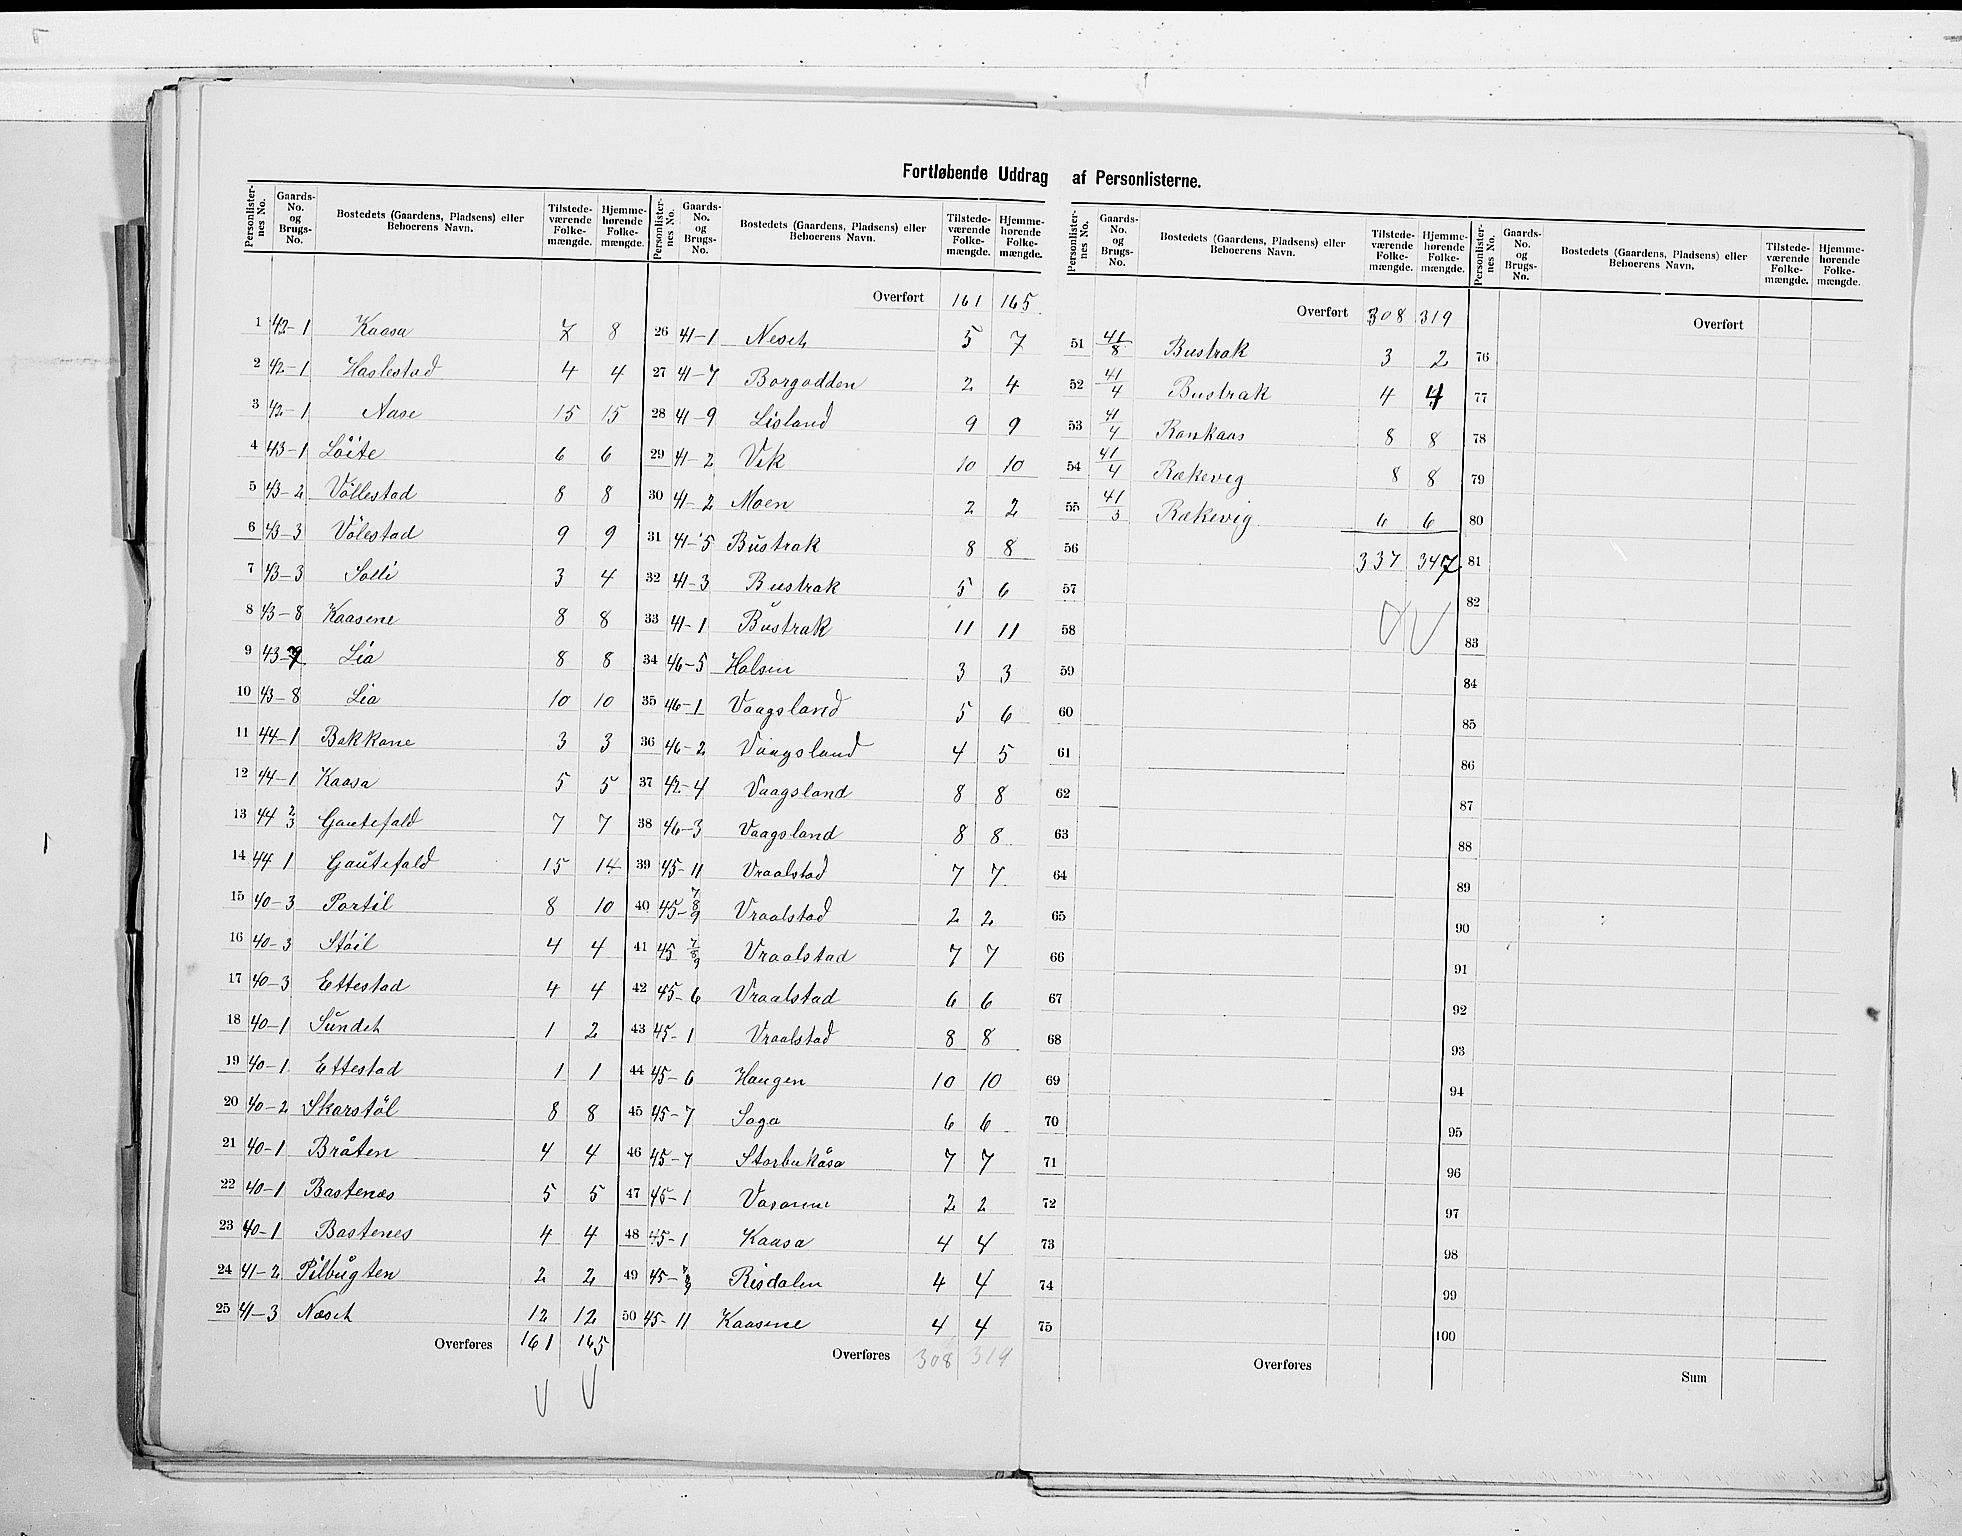 Fortløbende Uddrag af Personlisterne.
Personlister-nes No. | Gaards-No. og Brugs-No. | Bostedets (Gaardens, Pladsens) eller Beboerens Navn. | Tilstede-værende Folke-mængde. | Hjemme-hørende Folke-mængde.
1 42-1 Kaasa 7 8
2 42-1 Haslestad 4 4
3 42-1 Aase 15 15
4 43-1 Löite 6 6
5 43-2 Völlestad 8 8
6 43-3 Völestad 9 9
7 43-3 Solli 3 4
8 43-8 Kaasene 8 8
9 43-7 Lia 8 8
10 43-8 Lia 10 10
11 44-1 Bakkane 3 3
12 44-1 Kaasa 5 5
13 44 2/3 Gautefald 7 7
14 44 1 Gautefald 15 14
15 40-3 Portil 8 10
16 40-3 Stöil 4 4
17 40-3 Ettestad 4 4
18 40-1 Sundet 1 2
19 40-1 Ettestad 1 1
20 40-2 Skarstöl 8 8
21 40-1 Bråten 4 4
22 40-1 Bastenæs 5 5
23 40-1 Bastenes 4 4
24 41-2 Pilbugten 2 2
25 41-3 Næset 12 12
Overføres 161 165
Personlister-nes No. | Gaards-No. og Brugs-No. | Bostedets (Gaardens, Pladsens) eller Beboerens Navn. | Tilstede-værende Folke-mængde. | Hjemme-hørende Folke-mængde.
Overført 161 165
26 41-1 Neset 5 7
27 41-7 Borgodden 2 4
28 41-9 Lisland 9 9
29 41-2 Vik 10 10
30 41-2 Moen 2 2
31 41-5 Bustrak 8 8
32 41-3 Bustrak 5 6
33 41-1 Bustrak 11 11
34 46-5 Holsen 3 3
35 46-1 Vaagsland 5 6
36 46-2 Vaagsland 4 5
37 42-4 Vaagsland 8 8
38 46-3 Vaagsland 8 8
39 45-11 Vraalstad 7 7
40 45-7/8/9 Vraalstad 2 2
41 45 7/8/9 Vraalstad 7 7
42 45-6 Vraalstad 6 6
43 45-1 Vraalstad 8 8
44 45-6 Haugen 10 10
45 45-7 Saga 6 6
46 45-7 Storbukåsa 7 7
47 45-1 2 2
48 45-1 Kaasa 4 4
49 45- Risdalen 4 4
50 45-11 Kaasene 4 4
Overføres 308 319
Personlister-nes No. | Gaards-No. og Brugs-No. | Bostedets (Gaardens, Pladsens) eller Beboerens Navn. | Tilstede-værende Folke-mængde. | Hjemme-hørende Folke-mængde.
Overført 308 319
51 41/8 Bustrak 3 2
52 41/4 Bustrak 4 4
53 41/4 Rønkaas 8 8
54 41/4 Rækevig 8 8
55 41/3 Rækevig 6 6
56 337 347
57
58
59
60
61
62
63
64
65
66
67
68
69
70
71
72
73
74
75
Overføres
Personlister-nes No. | Gaards-No. og Brugs-No. | Bostedets (Gaardens, Pladsens) eller Beboerens Navn. | Tilstede-værende Folke-mængde. | Hjemme-hørende Folke-mængde.
Overført
76
77
78
79
80
81
82
83
84
85
86
87
88
89
90
91
92
93
94
95
96
97
98
99
100
Sum